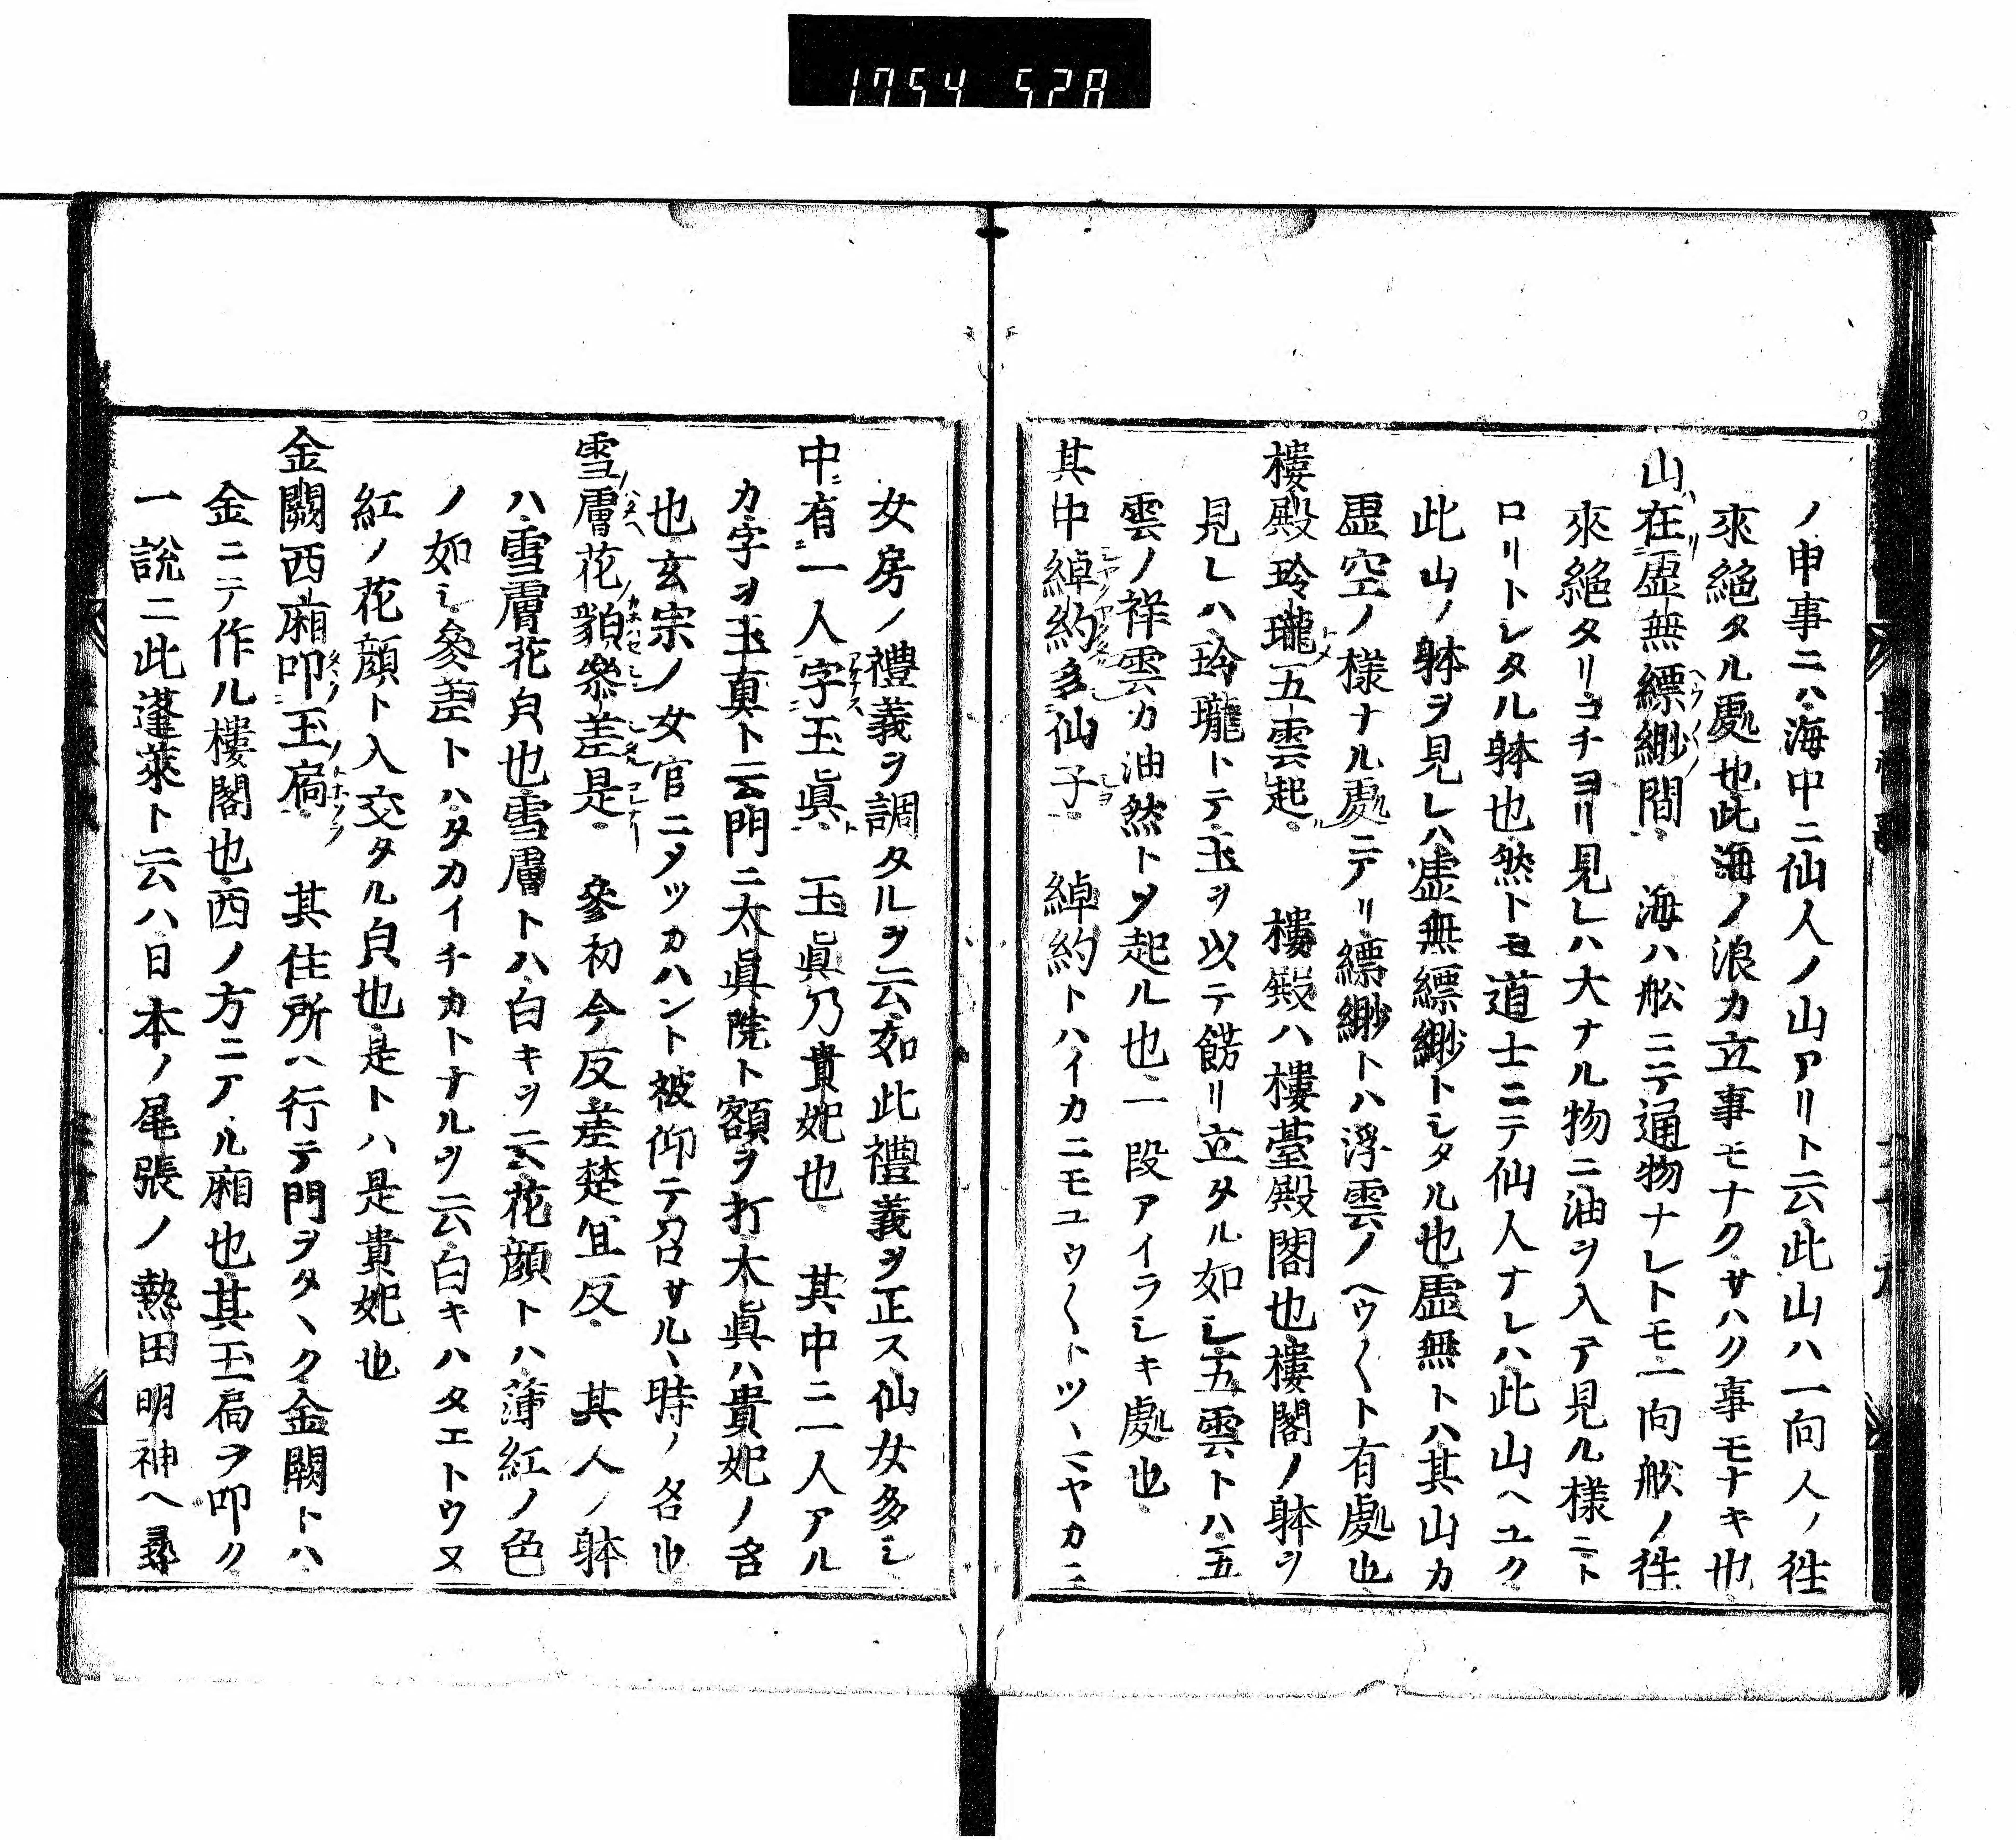 1754 528
ノ申事ニハ海中ニ仙人ノ山アリト云此山ハ一向人ノ往
來絶タル處也此海ノ浪カ立事モナクサハク事モナキ也
山在虚無縹緲間 海ハ舩ニテ通物ナレトモ一向舩ノ往
來絶タリコチヨリ見レハ大ナル物ニ油ヲ入テ見ル様ニト
ロリトレタル躰也然トモ道士ニテ仙人ナレハ此山ヘユク
此山ノ躰ヲ見レハ虚無縹緲トシタル也虚無トハ其山カ
虚空ノ様ナル處ニアリ縹緲トハ浮雲ノヘウ〱ト有處也
樓殿玲瓏五雲起 樓殿ハ樓臺殿閣也樓閣ノ躰ヲ
見レハ玲瓏トテ玉ヲ以テ餝リ立タル如シ五雲トハ五
雲ノ祥雲カ油然トツ起ル也一段アイラシキ處也
其中綽約多仙子 綽約トハイカニモユウ〱トツヽミヤカニ
女房ノ禮義ヲ調タルヲ云如此禮義ヲ正ス仙女多シ
中有一人字玉眞 玉眞乃貴妃也 其中ニ一人アル
カ字ヲ玉真ト云門ニ太眞院ト額ヲ打太眞ハ貴妃ノ名
也玄宗ノ女官ニメツカハント被仰テ召サルヽ時ノ名也
雪膚花貌參差是 參初今反差楚宜反 其人ノ躰
ハ雪膚花皃也雪膚トハ白キヲ云花顔トハ薄紅ノ色
ノ如シ參差トハタカイチカトナルヲ云白キハタエトウス
紅ノ花顔ト入交タル皃也是トハ是貴妃也
金闕西廂叩玉扃 其住所ヘ行テ門ヲタヽク金闕トハ
金ニテ作ル樓閣也西ノ方ニアル廂也其玉扃ヲ叩ク
一説ニ此蓬萊ト云ハ日本ノ尾張ノ熱田明神ヘ尋